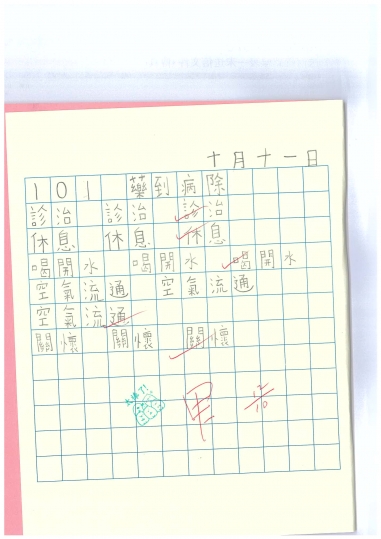 十月十一日
101 藥到病除
診治 診治 診治
休息 休息 休息
喝開水 喝開水 喝開水
空氣流通 空氣流通
空氣流通
關懷 關懷 關懷
太棒了!
甲